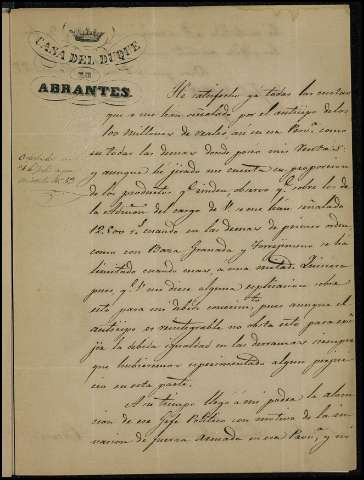 CASA DEL DUQUE
DE
ABRANTES.
He satisfecho ya todas las cuotas
que se me han señalado por el anticipo de los
100 millones de reales asi en esa Prov.ª como
en todas las demas donde poseo mis Rentas:
y aunque he jirado mi cuenta en proporcion
de los productos q.e rinden observo q.e sobre los de
la Admon del cargo de V. se me han señalado
12.800 r.s cuando en las demas de primer orden
como son Baza Granada y Torrejimeno se ha
limitado cuando mas, a una mitad. Quisiera
pues, q.e V. me diese alguna esplicacion sobre
esto para mi debido conocim.to, pues aunque el
anticipo es reintegrable no obsta esto para exi-
jir la debida igualdad en las derramas siempre
que hubiesemos esperimentado algun perjui-
cio en esta parte.
A su tiempo llegó á mi poder la alocu-
cion de ese Jefe Politico con motivo de la in-
vasion de fuerza armada en esa Prov.ª y mi